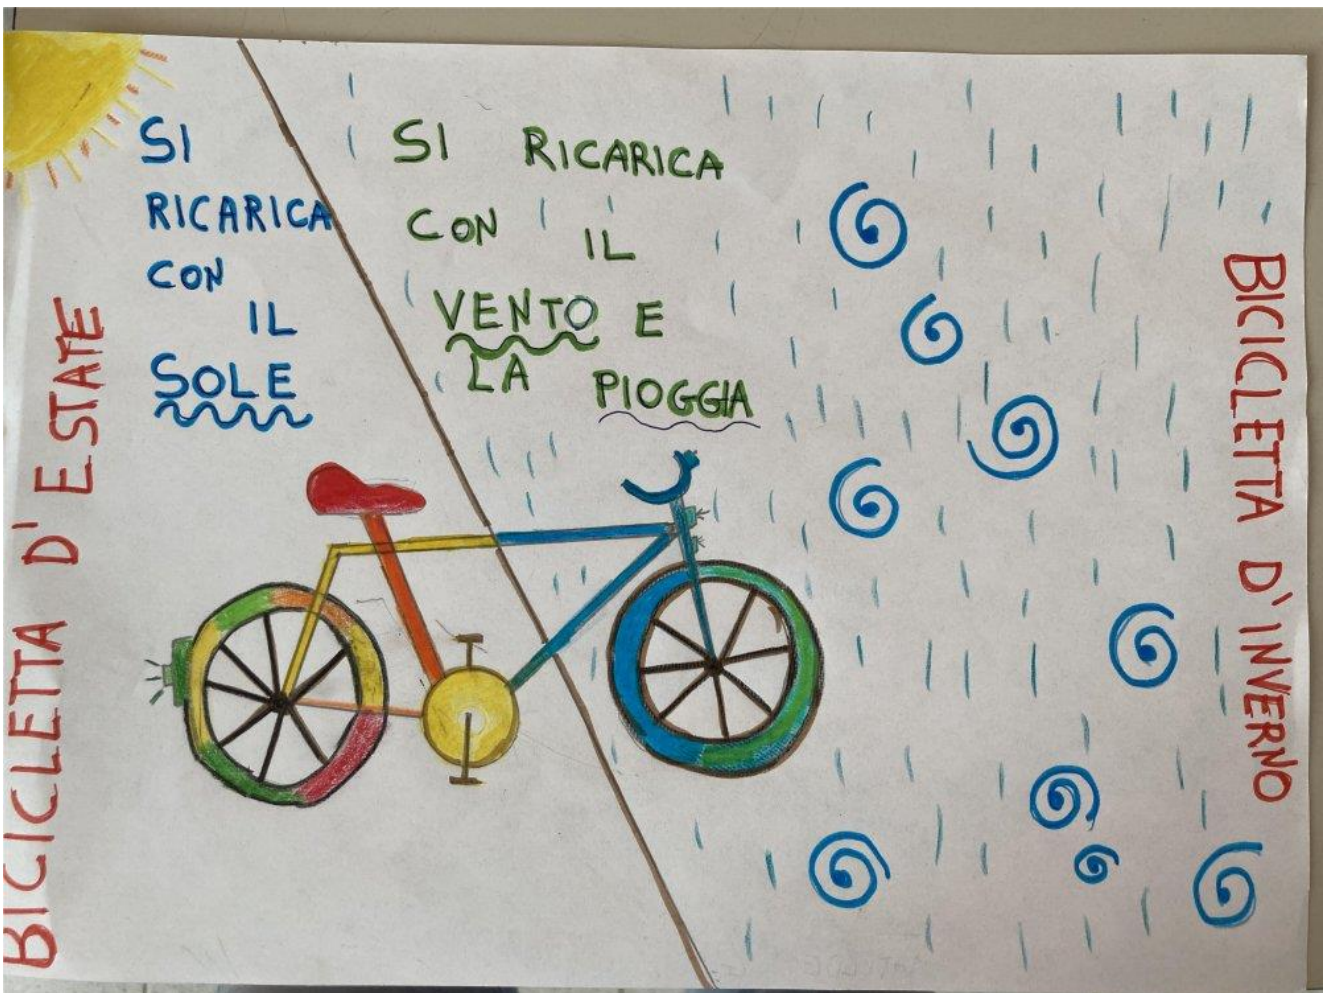 BICICLETTA D'ESTATE
SI
RICARICA
CON
IL
SOLE
SI RICARICA
CON IL
VENTO E
LA PIOGGIA
BICICLETTA D'INVERNO